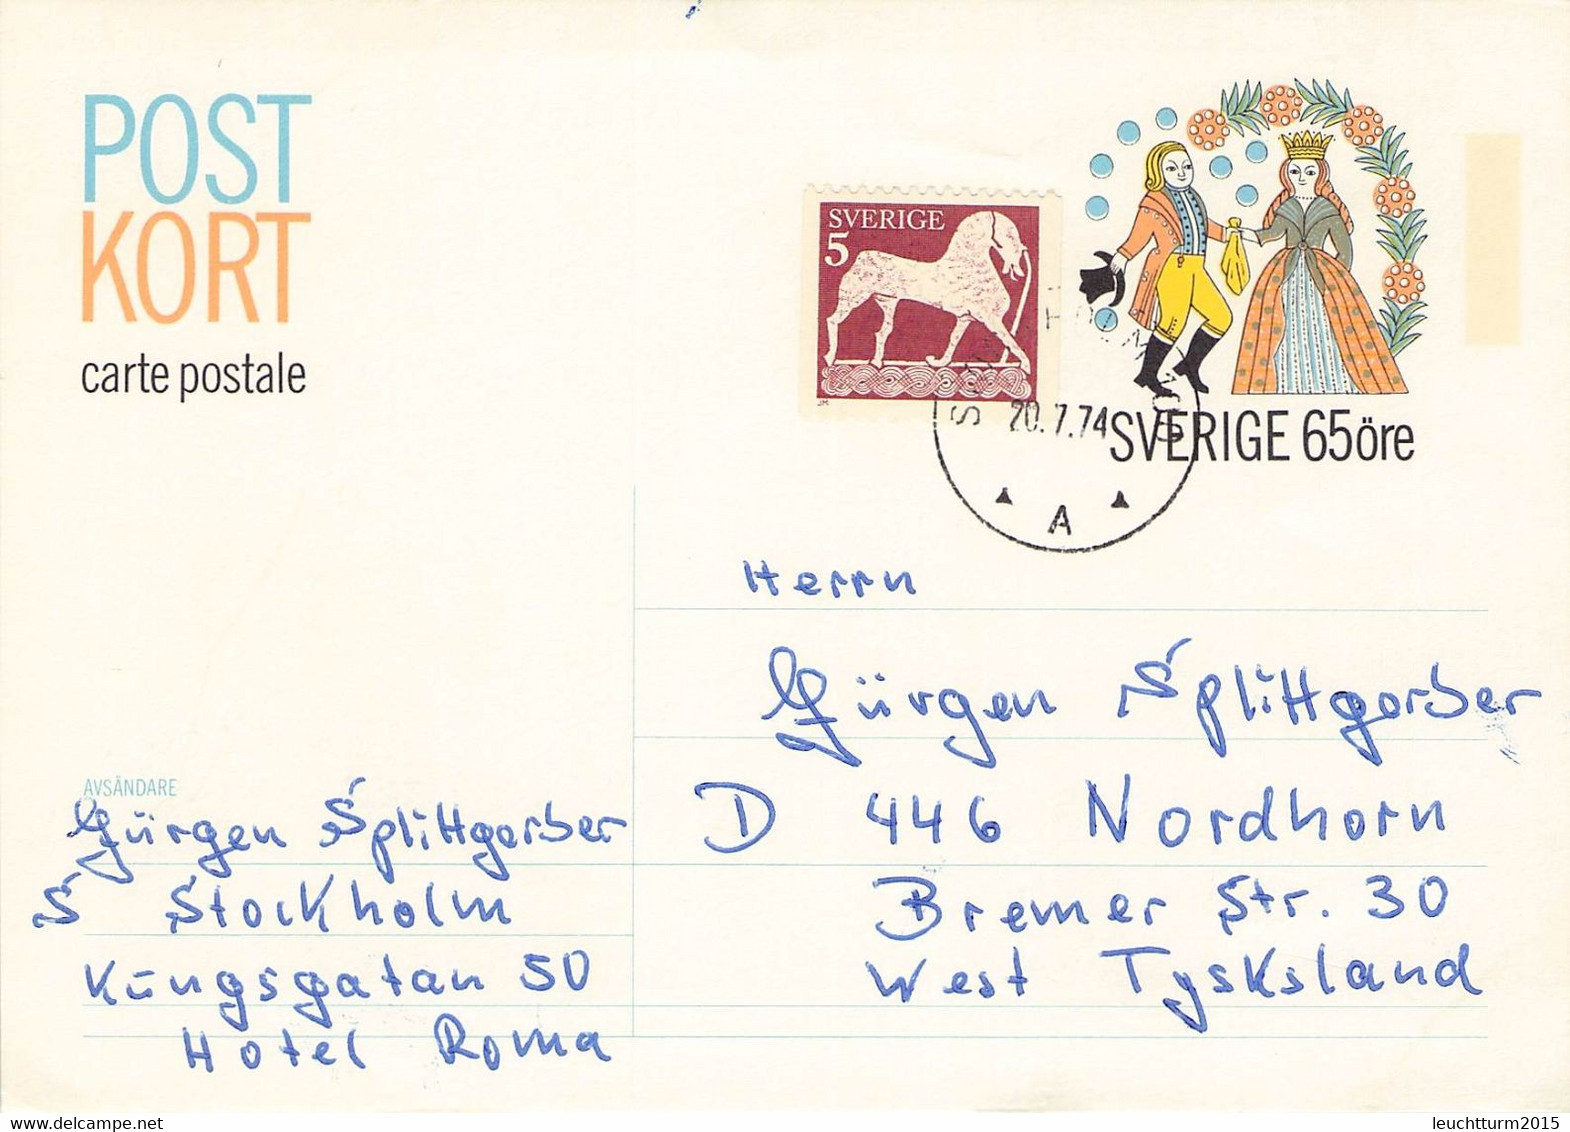 POST
KORT
carte postale
SVERIGE
5
JM
20.7.74
A
SVERIGE 65öre
Herrn
Jürgen Splittgerber
D 446 Nordhorn
Bremer Str. 30
West Tyskland
AVSÄNDARE
Jürgen Splittgerber
S Stockholm
Kungsgatan 50
Hotel Roma
leuchtturm2015